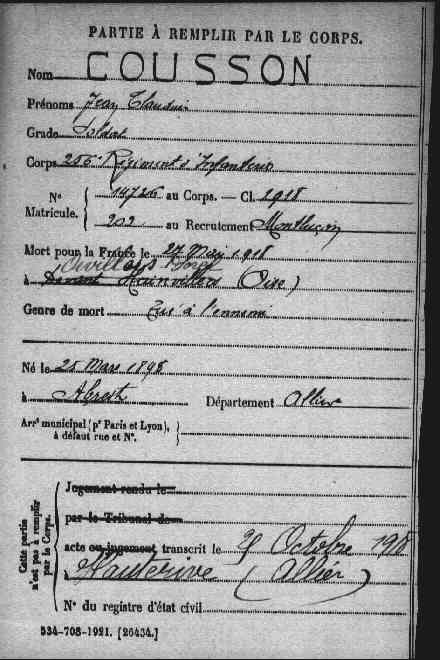 PARTIE À REMPLIR PAR LE CORPS.
Nom COUSSON
Prénoms Jean Claudius
Grade Soldat
Corps 256e Régiment d'Infanterie
N° Matricule. { 14726 au Corps. — Cl. 1918
202 au Recrutement Montluçon
Mort pour la France le 27 Mai 1918
à Devant (Oise)
Genre de mort Tué à l'ennemi
Né le 25 Mars 1898
à Abrest Département Allier
Arrt municipal (pr Paris et Lyon), à défaut rue et N°. }
Cette partie n'est pas à remplir par le Corps.
Jugement rendu le
par le Tribunal de
acte ou jugement transcrit le Octobre 1918
à Hauterive (Allier)
N° du registre d'état civil
534-708-1921. [26434.]